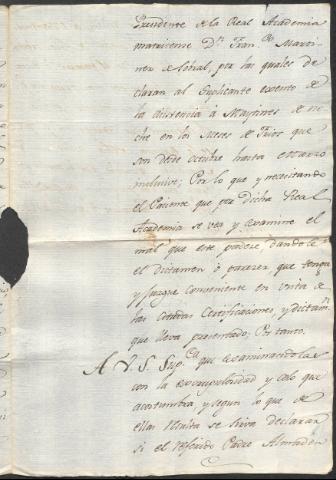 Presidente de la Real Academia
matritense Dn. Franco. Marti-
nez Sobral, por las quales de
claran al Suplicante exento de
la asistencia à Maytines de no
che en los Meses de Frios que
son desde octubre hasta Marzo
inclusive; Por lo que y necesitando
el Paciente que por dicha Real
Academia se vea y examine el
mal que este padece, dandole
el dictamen ò parecer que tenga
y juzgue conveniente en vista de
las citadas Certificaciones, y dictamn.
que lleva presentado; Por tanto.
A V. S. Supca. que examinandolas
con la escrupulosidad y celo que
acostumbra, y segun lo que de
ellas resulta se sirva declarar
si el referido Padre Almaden